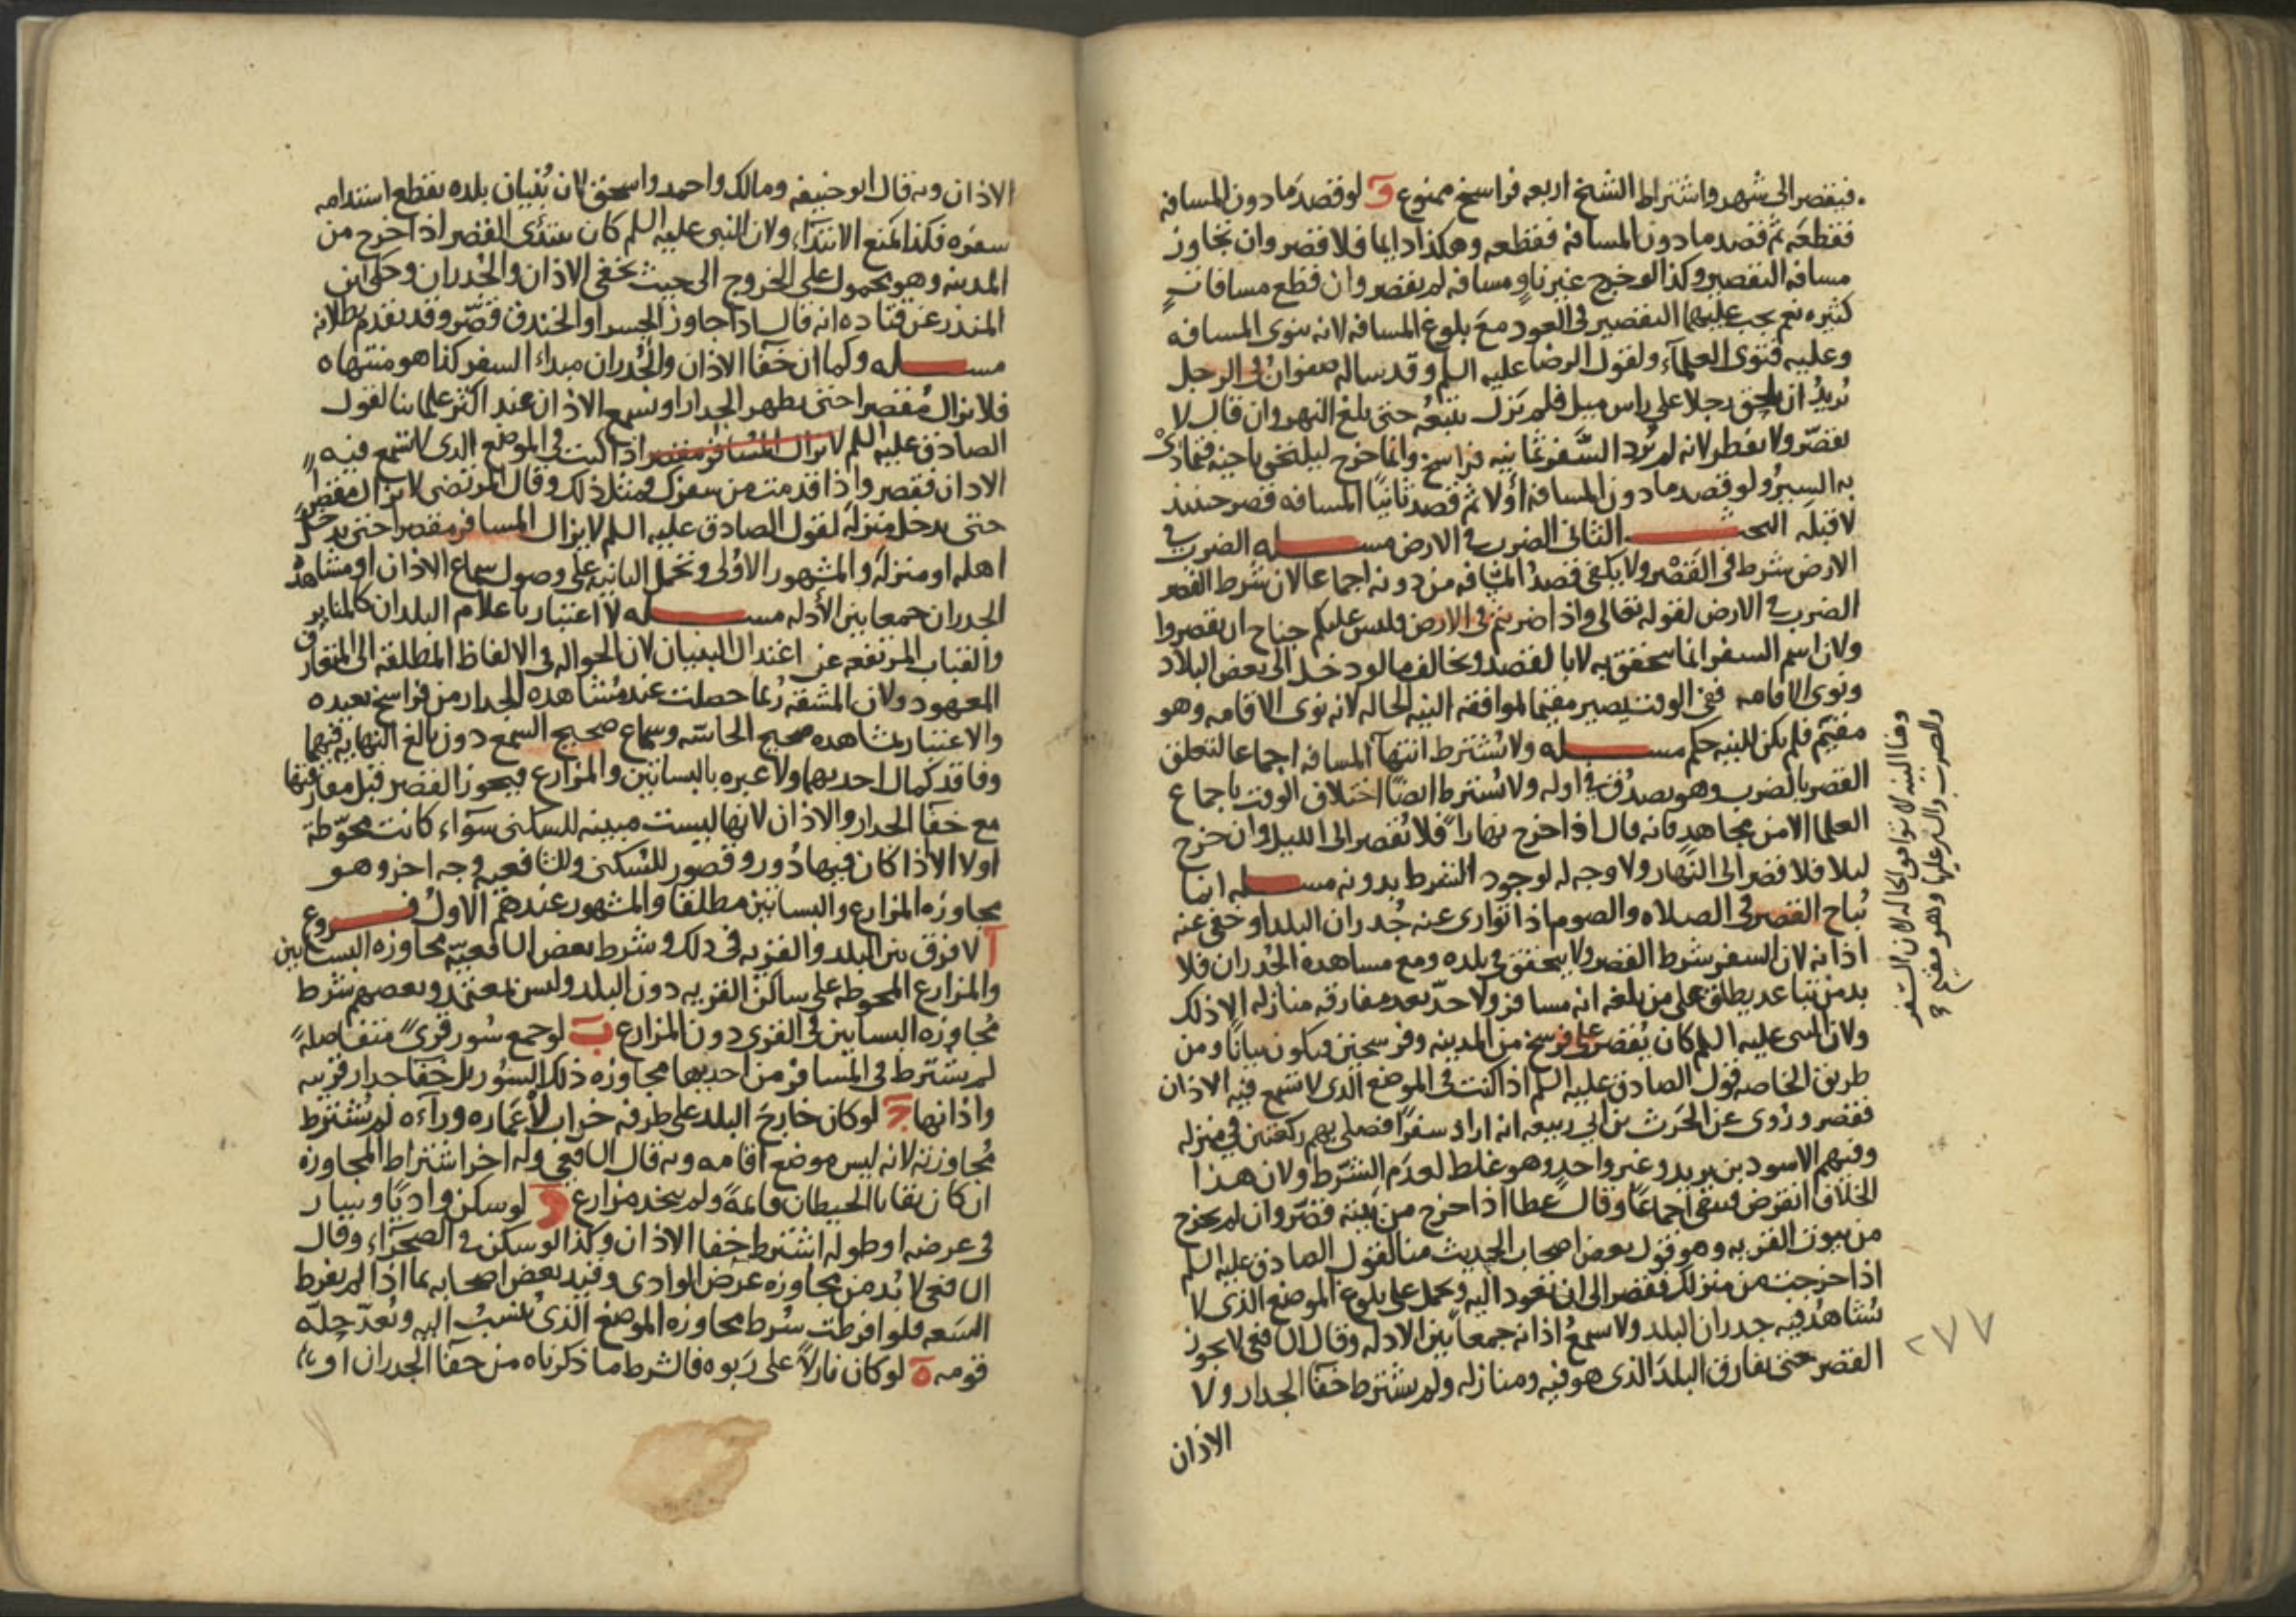 فيقصر الى شهر واشتراط الشيخ اربعه فراسخ ممنوع و لو قصد ما دون المسافه
فقطعه ثم قصد ما دون المسافه فقطعه وهكذا دايما فلا قصر وان تجاوز
مسافه التقصير وكذا لو خرج غير ناو مسافه لم يقصر وان قطع مسافات
كثيره نعم يجب عليهما التقصير فى العود مع بلوغ المسافه لانه ينوى المسافه
وعليه فتوى العلمآء ولقول الرضا عليه السلم وقد ساله صفوان فى الرجل
يريد ان يلحق رجلا على راس ميل فلم يزل يتبعه حتى بلغ النهروان قال لا
يقصّر ولا يفطر لانه لم يُرد السَّفر ثمانيه فراسخ وانما خرج ليلحق صاحبه فتمادى
به السير ولو قصد ما دون المسافه أولا ثم قصد ثانيًا المسافه قصر حينئذ
لا قبله البحث الثانى الضرب فى الارض مسله الضرب فى
الارض شرط فى القصر ولا يكفى قصد المسافه من دونه اجماعا لان شرط القصر
الضرب فى الارض لقوله تعالى واذا ضربتم فى الارض فليس عليكم جناح ان تقصروا
ولان اسم السفر انما يتحقق به لا بالقصد ويخالف ما لو دخل الى بعض البلاد
ونوى الاقامه ففى الوقت يصير مقيما لموافقه النيه الحاله لانه نوى الاقامه وهو
مقيم فلم يكن للنيه حكم مسله ولا يشترط انتهآ المسافه اجماعا لتعلق
القصر بالضرب وهو يصدق فى اوله ولا يشترط ايضًا اختلاف الوقت باجماع
العلما الا من مجاهد فانه قال اذا خرج نهاراً فلا يقصر الى الليل وان خرج
ليلا فلا قصر الى النهار ولا وجه له لوجود الشرط بدونه مسله انما
يُباح القصر فى الصلاه والصوم اذا توارى عنه جُدران البلد او خفى عنه
اذانه لان السفر شرط القصر ولا يتحقق فى بلده ومع مشاهده الجُدران فلا
بد من تباعد يطلق على من بلغه انه مسافر ولا حدّ بعد مفارقه منازله الا ذلك
ولان النبى عليه السلم كان يُقصر على فرسخ من المدينه وفرسخين فيكون بيانًا ومن
طريق الخاصه قول الصادق عليه السلم اذا كنت فى الموضع الذى لا تسمع فيه الاذان
فقصر وروى عن الحرث بن ابى ربيعه انه اراد سفرًا فصلى بهم ركعتين فى منزله
وفيهم الاسود بن يزيد وغير واحد وهو غلط لعدم الشرط ولان هذا
الخلاف انقرض فبقى اجماعًا وقال عطا اذا خرج من بيته قصّر وان لم يخرج
من بيوت القريه وهو قول بعض اصحاب الحديث منا لقول الصادق عليه السلم
اذا خرجت من منزلك فقصر الى ان تعود اليه ويحمل على بلوغ الموضع الذى لا
يُشاهد فيه جدران البلد ولا يسمع اذانه جمعاً بين الادله وقال الشافعى لا يجوز
القصر حتى يفارق البلد الذى هو فيه ومنازله ولم يشترط خفآ الجدار ولا
الاذان
وهنا النيه لا توافق الحاله لان السفر
والضرب
وهو مقيم
٢٧٧
الاذان وبه قال ابو حنيفه ومالك واحمد واسحق لان بُنيان بلده يقطع استدامه
سفره فكذا يمنع الابتدآء ولان النبى عليه السلم كان يبتدئ القصر اذا خرج من
المدينه وهو محمول على الخروج الى حيث يخفى الاذان والجُدران وحكى ابن
المنذر عن قتاده انه قال اذا جاوز الجسر او الخندق قصّر وقد تقدم بطلانه
مسله وكما ان خفآ الاذان والجُدران مبداء السفر كذا هو منتهاه
فلا يزال مُقصرا حتى يظهر الجدار او يسمع الاذان عند اكثر علمائنا لقول
الصادق عليه السلم لا يزال المسافر مقصرا اذا كنت فى الموضع الذى لا تسمع فيه
الاذان فقصر واذا قدمت من سفرك فمثل ذلك وقال المرتضى لا يزال مقصرا
حتى يدخل منزله لقول الصادق عليه السلم لا يزال المسافر مقصرا حتى يدخل
اهله او منزله والمشهور الاولى وتحمل الثانيه على وصول سماع الاذان او مشاهده
الجدران جمعا بين الأدله مسله لا اعتبار باعلام البلدان كالمناير
والقباب المرتفعه عن اعتدال البنيان لان الحواله فى الالفاظ المطلقه الى المتعارف
المعهود ولان المشقه رُبما حصلت عند مُشاهده الجدار من فراسخ بعيده
والاعتبار بمشاهده صحيح الحاسّه وسماع صحيح السمع دون بالغ النهايه فيهما
وفاقد كمال احديهما ولا عبره بالبساتين والمزارع فيجوز القصر قبل مفارقتها
مع خفآ الجدار والاذان لانها ليست مبينه للسكنى سوآء كانت محوّطة
اولا الا اذا كان فيها دُور وقصور للسُكنى وللشافعيه وجه اخر وهو
مجاوزه المزارع والبساتين مطلقا والمشهور عندهم الاول فـــروع
آ لا فرق بين البلد والقريه فى ذلك وشرط بعض الشافعيّه مجاوزه البساتين
والمزارع المحوطه على ساكن القريه دون البلد وليس بمعتمد وبعضهم شرط
مُجاوزه البساتين فى القرى دون المزارع ب لو جمع سُور قرى متفاصلةً
لم يشترط فى المسافر من احديها مجاوزه ذلك السُور بل خفآ جدار قريته
واذانها ج لو كان خارج البلد على طرفه خراب لا عَماره ورآءه لم يُشترط
مُجاوزته لانه ليس موضع اقامه وبه قال الشافعى وله اخر اشتراط المجاوزه
ان كان بقايا الحيطان قائمةً ولم يتخذ مزارع د لو سكن واديًا وسار
فى عرضه او طوله اشترط خفا الاذان وكذا لو سكن فى الصحرآء وقال
الشافعى لا بُد من مجاوزه عرض الوادى وقيد بعض اصحابه بما اذا لم يفرط
السعه فلو افرطت شُرط مجاوزه الموضع الذى يُنسبُ اليه وتُعدّ حلّه
قومه ه لو كان نازلاً على رَبوه فالشرط ما ذكرناه من خفآ الجدران او